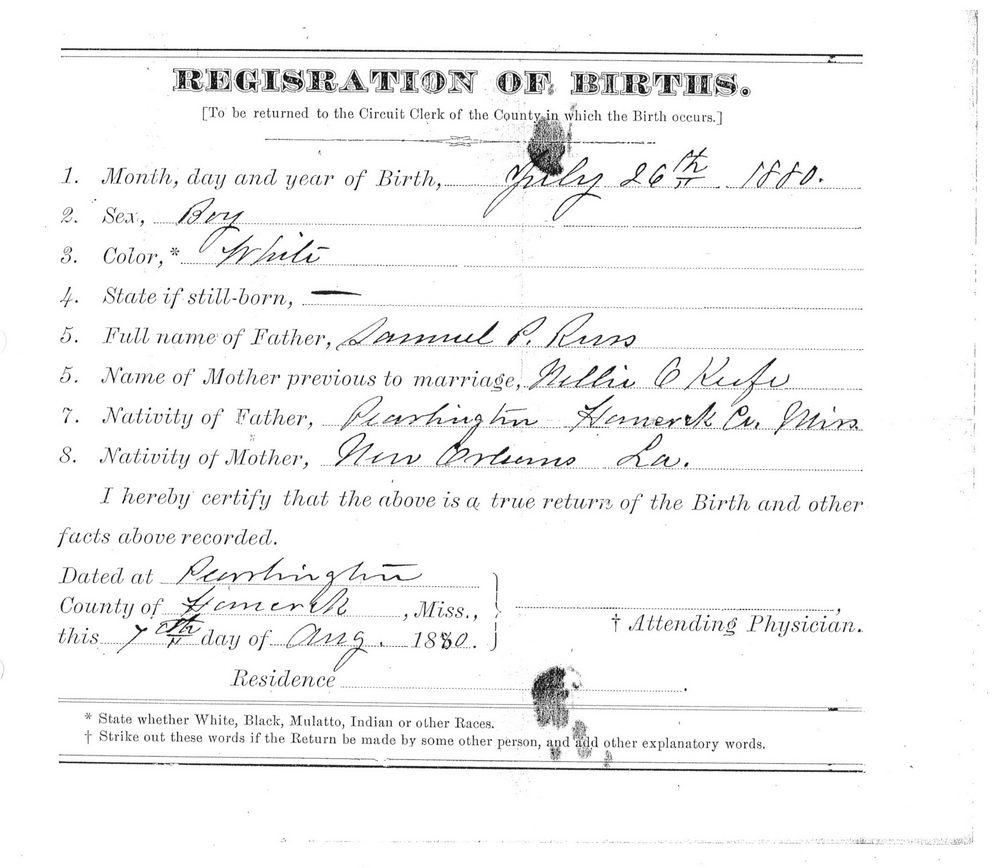 REGISRATION OF BIRTHS.
[To be returned to the Circuit Clerk of the County in which the Birth occurs.]
1. Month, day and year of Birth, July 26th 1880.
2. Sex, Boy
3. Color,* White
4. State if still-born, —
5. Full name of Father, Samuel P. Russ
5. Name of Mother previous to marriage, Nellie O Keefe
7. Nativity of Father, Pearlington Hancock Co. Miss
8. Nativity of Mother, New Orleans La.
I hereby certify that the above is a true return of the Birth and other
facts above recorded.
Dated at Pearlington
County of Hancock, Miss.,
this 7th day of Aug. 1880.
† Attending Physician.
Residence
* State whether White, Black, Mulatto, Indian or other Races.
† Strike out these words if the Return be made by some other person, and add other explanatory words.